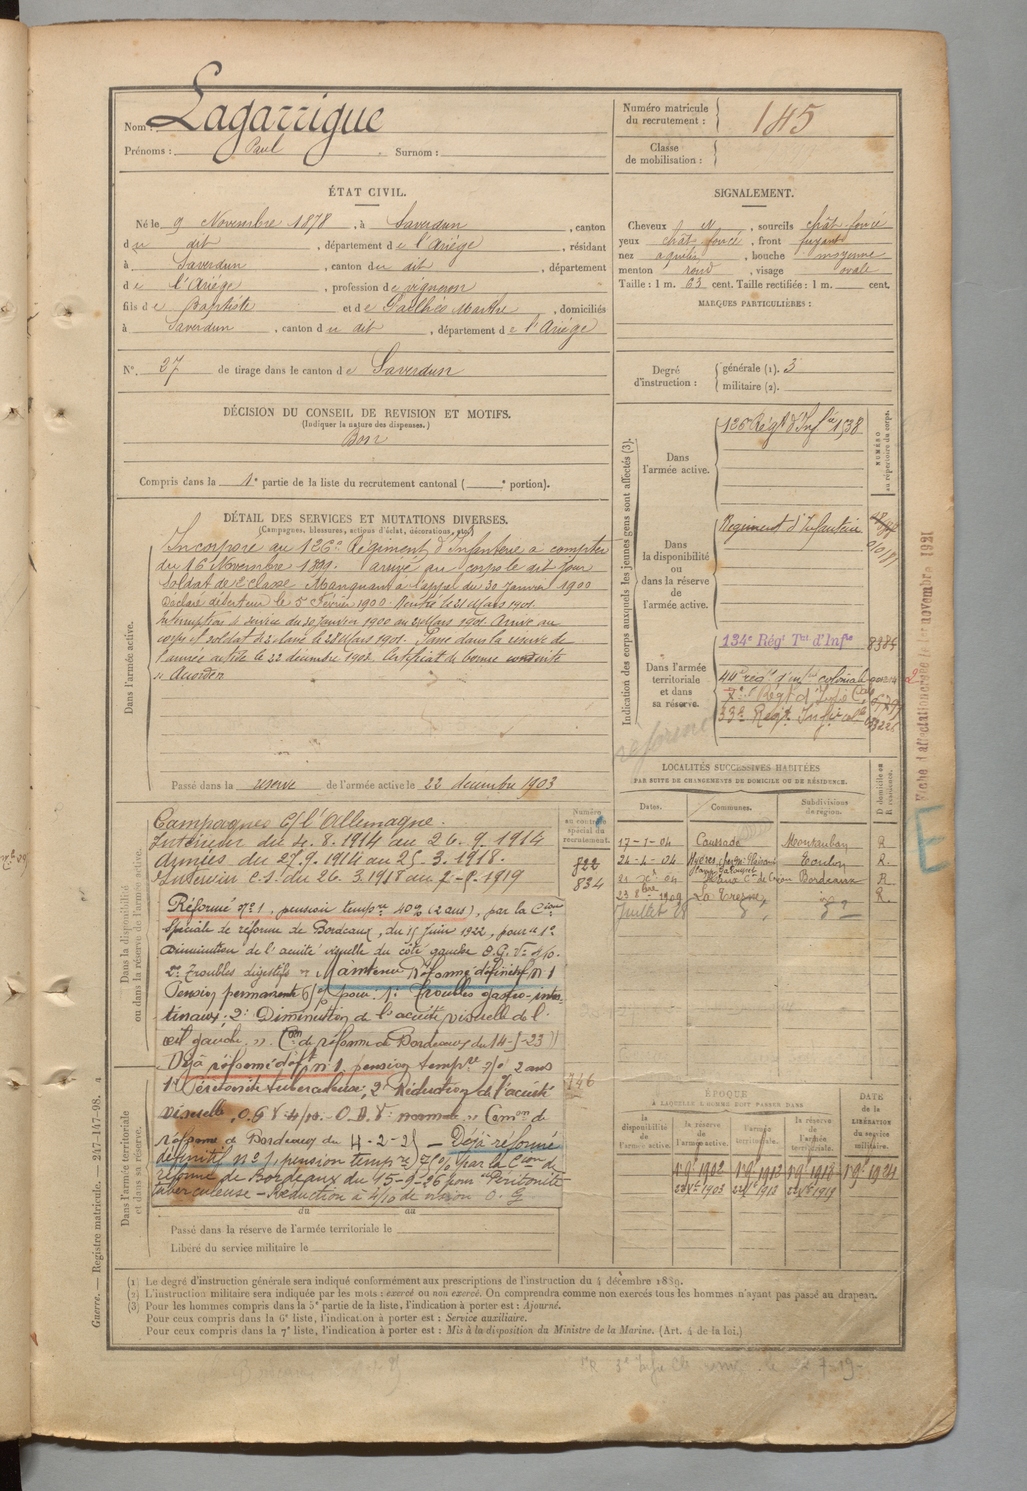 Nom : Lagarrigue
Prénoms : Paul Surnom :
Numéro matricule du recrutement : 145
Classe de mobilisation :
ÉTAT CIVIL.
Né le 9 Novembre 1878, à Saverdun, canton
du dit, département de l'Ariège, résidant
à Saverdun, canton du dit, département
de l'Ariège, profession de vigneron
fils de Baptiste et de Gailhés Marthe, domiciliés
à Saverdun, canton du dit, département de l'Ariège
N°. 27 de tirage dans le canton de Saverdun
SIGNALEMENT.
Cheveux N, sourcils chât foncé
yeux chât foncé, front fuyant
nez aquilin, bouche moyenne
menton rond, visage ovale
Taille : 1 m. 63 cent. Taille rectifiée : 1 m. cent.
MARQUES PARTICULIÈRES :
Degré d'instruction : générale (1). 3
militaire (2).
DÉCISION DU CONSEIL DE REVISION ET MOTIFS.
(Indiquer la nature des dispenses.)
Bon
Compris dans la 1e partie de la liste du recrutement cantonal ( e portion).
DÉTAIL DES SERVICES ET MUTATIONS DIVERSES.
(Campagnes, blessures, actions d'éclat, décorations, etc.)
Dans l'armée active.
Incorporé au 126e Régiment d'Infanterie à compter
du 16 Novembre 1899. arrivé au corps le dit jour
Soldat de 2e classe. Manquant à l'appel du 30 Janvier 1900
Déclaré déserteur le 5 Février 1900. Rentré le 21 Mars 1901.
Interruption de service du 30 Janvier 1900 au 20 Mars 1901. Arrivé au
corps et soldat de 2e classe le 28 Mars 1901. Passé dans la réserve de
l'armée active le 22 décembre 1903. Certificat de bonne conduite
"Accordé"
Passé dans la réserve de l'armée active le 22 décembre 1903
Indication des corps auxquels les jeunes gens sont affectés (3).
NUMÉRO au répertoire du corps.
Dans l'armée active.
126 Régt d'Infie 1538
Dans la disponibilité ou dans la réserve de l'armée active.
Régiment d'Infanterie
Dans l'armée territoriale et dans sa réserve.
134e Régt Tal d'Infie 8384
44e régt d'infie coloniale
7e Régt d'Infie Cale
33e Régt Infie cale
réformé
Fiche d'affectation créée le 1er novembre 1921
E
Dans la disponibilité ou dans la réserve de l'armée active.
Campagnes C/ l'Allemagne.
Intérieur du 4. 8. 1914 au 26. 9. 1914
Armées du 27. 9. 1914 au 25. 3. 1918.
Intérieur c.s. du 26. 3. 1918 au
Réformé N°1, pension tempre 40% (2 ans), par la Cion
spéciale de réforme de Bordeaux, du 15 Juin 1922, pour 1°
Diminution de l'acuité visuelle du côté gauche O.G. V= 4/10.
2° Troubles digestifs. Maintenu Réformé définitif N°1
Pension permanente pour : 1° Troubles gastro-intes-
tinaux ; 2° Diminution de l'acuité visuelle de l'
œil gauche. " Con de réforme de Bordeaux du 14-5-23
Déjà réformé déft n°1, pension tempre 2 ans
1° Péritonite tuberculeuse, 2° Réduction de l'acuité
visuelle, O.G V 4/10. O.D. V: normale " Comon de
réforme de Bordeaux du 4-2-25 – Déjà réformé
définitif n°1, pension tempre par la Cion de
réforme de Bordeaux du 15-9-26 pour "Péritonite
tuberculeuse – Réduction à 4/10 de vision O. G
Numéro au contrôle spécial du recrutement.
822
834
146
LOCALITÉS SUCCESSIVES HABITÉES
PAR SUITE DE CHANGEMENTS DE DOMICILE OU DE RÉSIDENCE.
Dates. Communes. Subdivisions de région. D domicile ou R résidence.
17-1-04 Caussade Montauban R
24-4-04 Hyères Toulon R.
21 04 Bordeaux R
23 8bre 1909 La Tresne R.
Juillet 28
ÉPOQUE
À LAQUELLE L'HOMME DOIT PASSER DANS
la disponibilité de l'armée active. la réserve de l'armée active. l'armée territoriale. la réserve de l'armée territoriale.
DATE de la LIBÉRATION du service militaire.
1er 9bre 1902 1er 9bre 1912 1er 9bre 1918 1er 9bre 1924
22 Xbre 1903
Dans l'armée territoriale et dans sa réserve.
du au
Passé dans la réserve de l'armée territoriale le
Libéré du service militaire le
(1) Le degré d'instruction générale sera indiqué conformément aux prescriptions de l'instruction du 4 décembre 1889.
(2) L'instruction militaire sera indiquée par les mots : exercé ou non exercé. On comprendra comme non exercés tous les hommes n'ayant pas passé au drapeau.
(3) Pour les hommes compris dans la 5e partie de la liste, l'indication à porter est : Ajourné.
Pour ceux compris dans la 6e liste, l'indication à porter est : Service auxiliaire.
Pour ceux compris dans la 7e liste, l'indication à porter est : Mis à la disposition du Ministre de la Marine. (Art. 4 de la loi.)
Guerre. — Registre matricule. — 247-147-98. 4